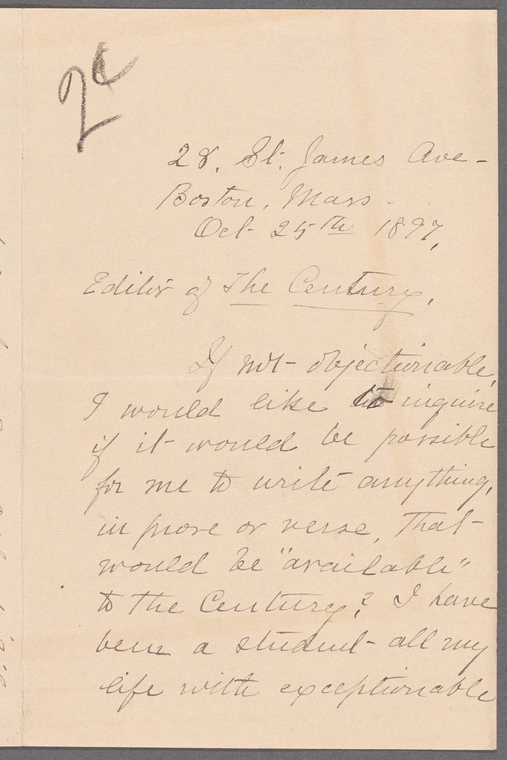 2c
28, St. James Ave-
Boston, Mass-
Oct 25th 1897,
Editor of The Century,
If not objectionable,
I would like to inquire
if it would be possible
for me to write anything,
in prose or verse, that
would be "available"
to the Century? I have
been a student all my
life with exceptionable